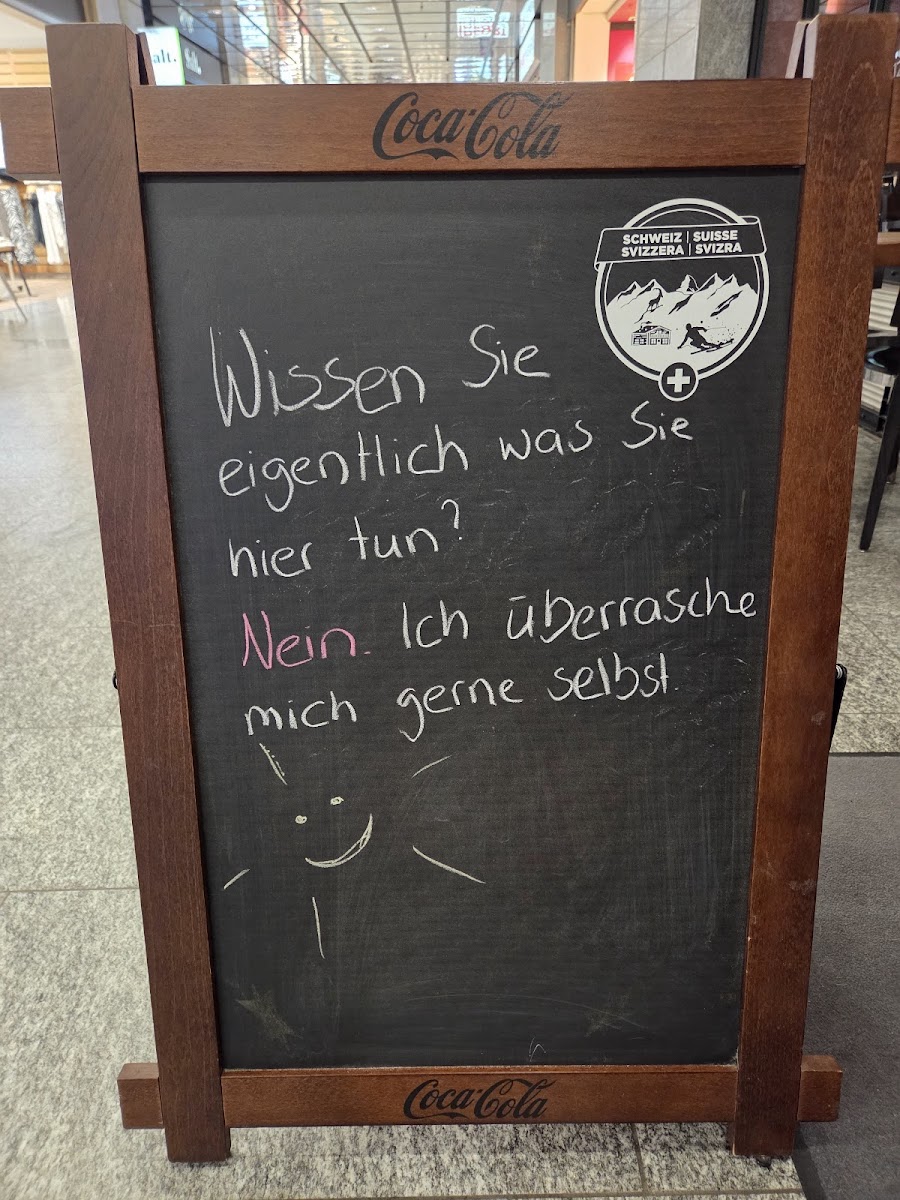 alt.
Coca-Cola
SCHWEIZ | SUISSE
SVIZZERA | SVIZRA
Wissen Sie
eigentlich was Sie
hier tun?
Nein. Ich überrasche
mich gerne selbst.
Coca-Cola